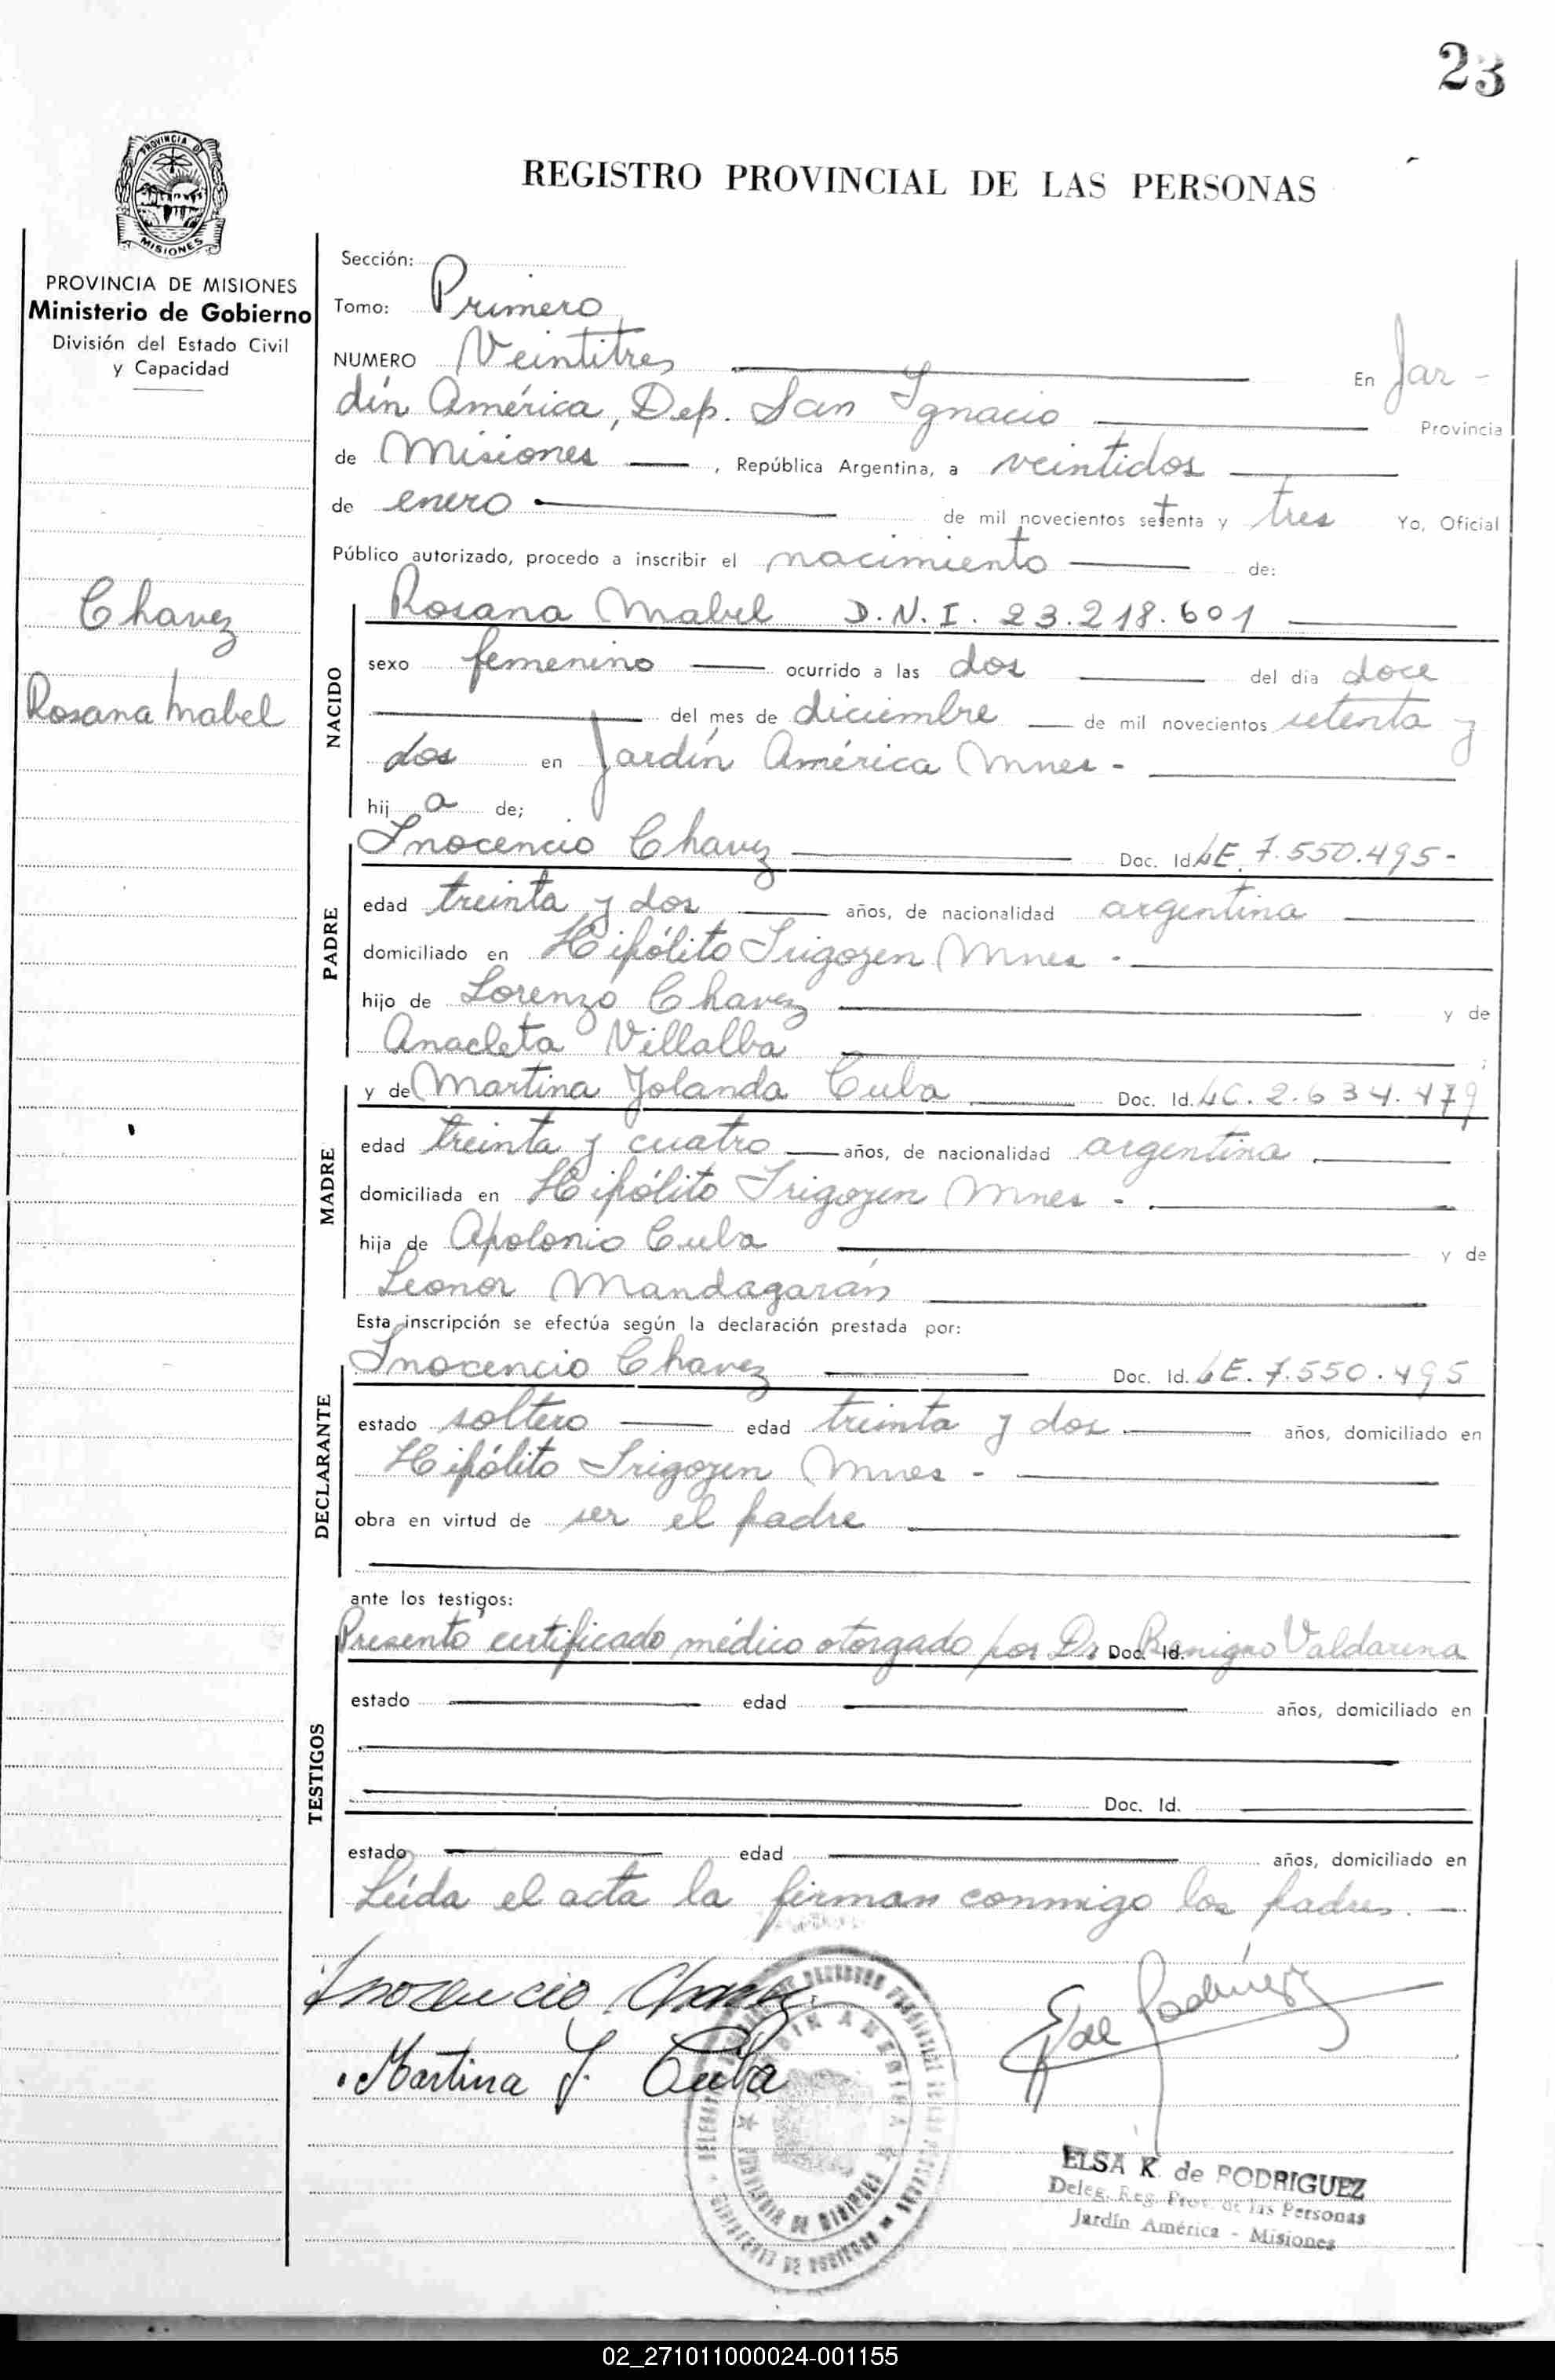 23
PROVINCIA DE
MISIONES
REGISTRO PROVINCIAL DE LAS PERSONAS
PROVINCIA DE MISIONES
Ministerio de Gobierno
División del Estado Civil
y Capacidad
Chavez
Rosana Mabel
Sección:
Tomo: Primero
NUMERO Veintitres En Jar -
dín América, Dep. San Ignacio Provincia
de Misiones, República Argentina, a veintidos
de enero de mil novecientos setenta y tres Yo, Oficial
Público autorizado, procedo a inscribir el nacimiento de:
NACIDO
Rosana Mabel D.N.I. 23.218.601
sexo femenino ocurrido a las dos del dia doce
del mes de diciembre de mil novecientos setenta y
dos en Jardín América Mnes -
hij a de;
PADRE
Inocencio Chavez Doc. Id. LE. 7.550.495-
edad treinta y dos años, de nacionalidad argentina
domiciliado en Hipólito Irigoyen Mnes -
hijo de Lorenzo Chavez y de
Anacleta Villalba ;
MADRE
y de Martina Yolanda Cuba Doc. Id. LC. 2.634.479
edad treinta y cuatro años, de nacionalidad argentina
domiciliada en Hipólito Irigoyen Mnes -
hija de Apolonio Cuba y de
Leonor Mandagarán
Esta inscripción se efectúa según la declaración prestada por:
DECLARANTE
Inocencio Chavez Doc. Id. LE. 7.550.495
estado soltero edad treinta y dos años, domiciliado en
Hipólito Irigoyen Mnes -
obra en virtud de ser el padre
ante los testigos:
TESTIGOS
Presentó certificado médico otorgado por Dr Doc. Id. Benigno Valdarena
estado edad años, domiciliado en
Doc. Id.
estado edad años, domiciliado en
Leída el acta la firman conmigo los padres. -
Inocencio Chavez
Martina Y. Cuba
ELSA K. de RODRIGUEZ
Deleg. Reg. Prov. de las Personas
Jardín América - Misiones
02_271011000024-001155